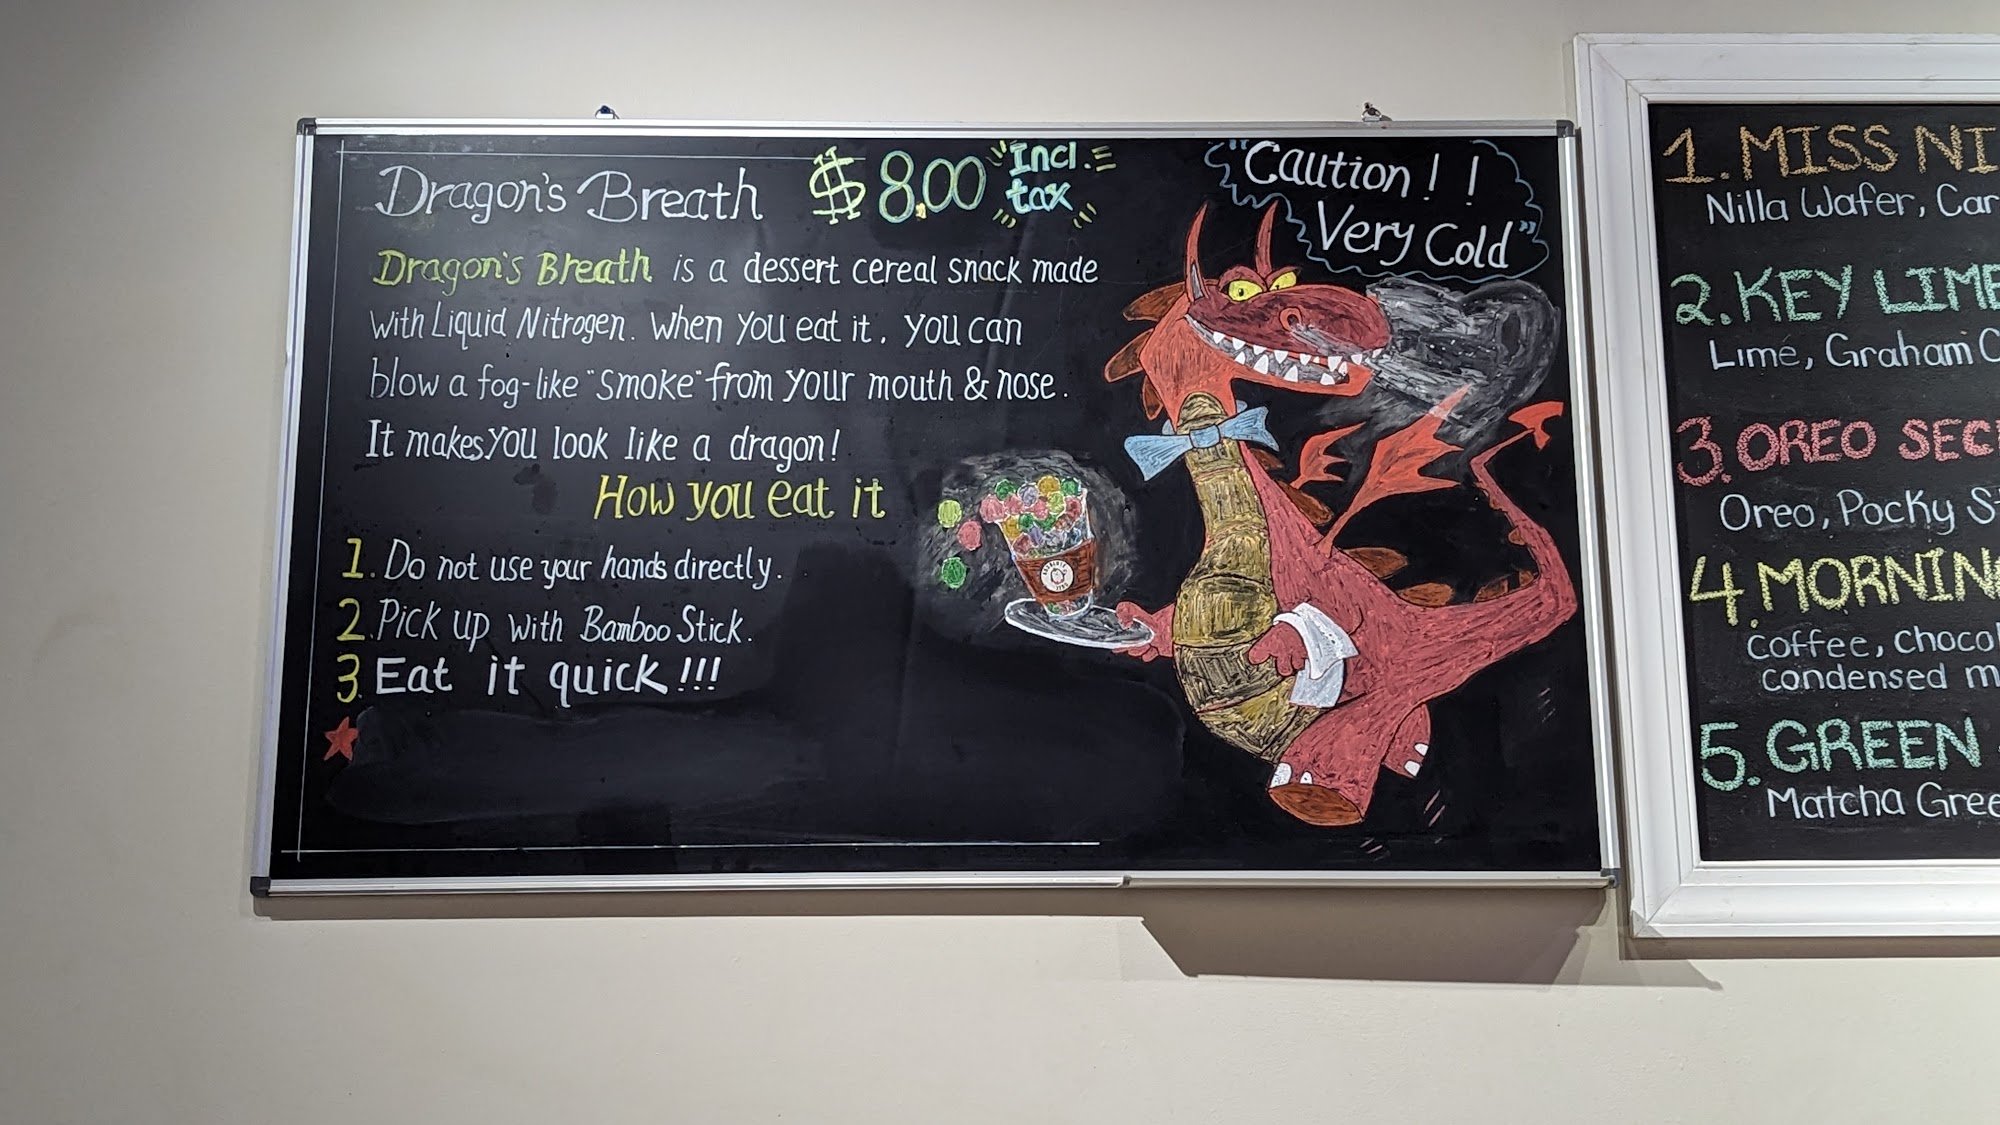 Dragon's Breath $8.00 Incl. tax
Dragon's Breath is a dessert cereal snack made
with Liquid Nitrogen. When you eat it, you can
blow a fog-like "smoke" from your mouth & nose.
It makes you look like a dragon!
How you eat it
1. Do not use your hands directly.
2. Pick up with Bamboo Stick.
3. Eat it quick!!!
"Caution!!
Very Cold"
1. MISS NI
Nilla Wafer, Car
2. KEY LIME
Lime, Graham C
3. OREO SEC
Oreo, Pocky St
4. MORNING
Coffee, Chocol
condensed m
5. GREEN
Matcha Gree